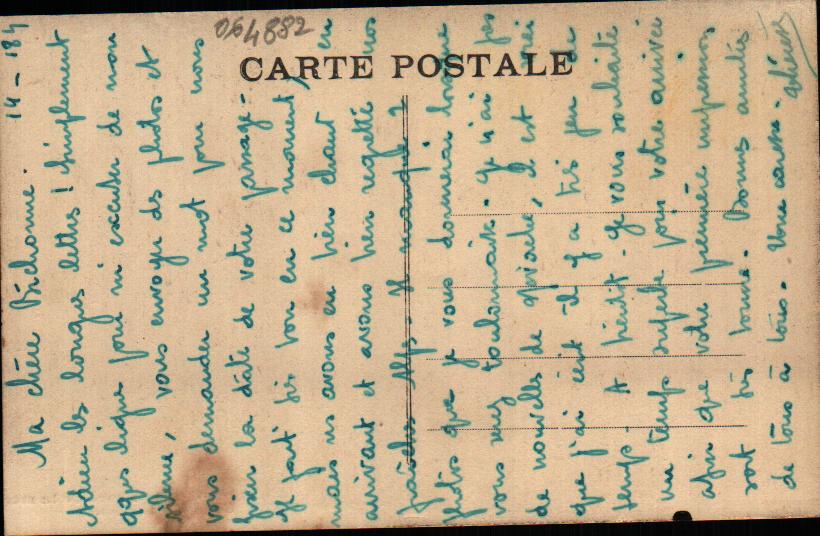 064882
CARTE POSTALE
14-
Ma chère Bichonne.
Adieu les longues lettres ! Simplement
qqes lignes pour m'excuser de mon
silence, vous envoyer des photos et
vous demander un mot pour nous
fixer la date de votre passage.
Il fait très bon en ce moment,
mais ns avons eu bien chaud en
arrivant et avons bien regretté nos
fraîches Alpes. Il manque 2
photos que je vous donnerai lorsque
vous serez toulonnais. Je n'ai pas
de nouvelles de, il est vrai
que j'ai écrit il y a très peu de
temps. A bientôt. Je vous souhaite
un temps superbe pour votre arrivée
afin que votre première impression
soit très bonne. Bonnes amitiés
de tous à tous. Une caresse.